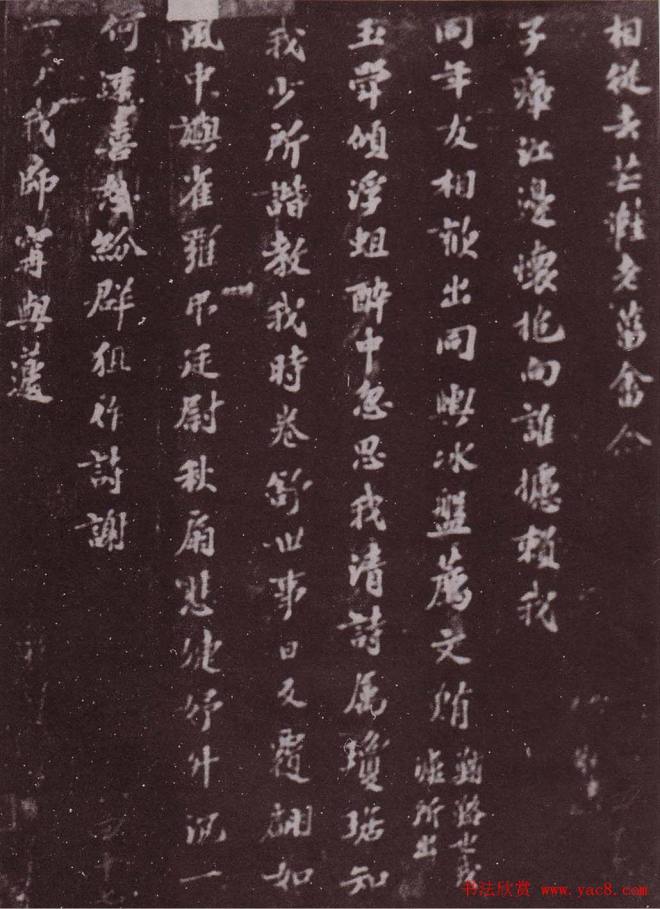 相從去芒淮老菑畬念
子瘴江邊懷抱向誰攄賴我
同年友相歡出同輿冰盤薦文鮪
也戎瀘所出
玉斝傾浮蛆醉中忽思我清詩屬瓊琚知
我少所諧教我時卷舒世事日反覆翩如
風中旟雀羅弔廷尉秋扇悲婕妤升沉一
何速喜怒紛群狙作詩謝
二子我師甯與蘧
书法欣赏 www.yac8.com